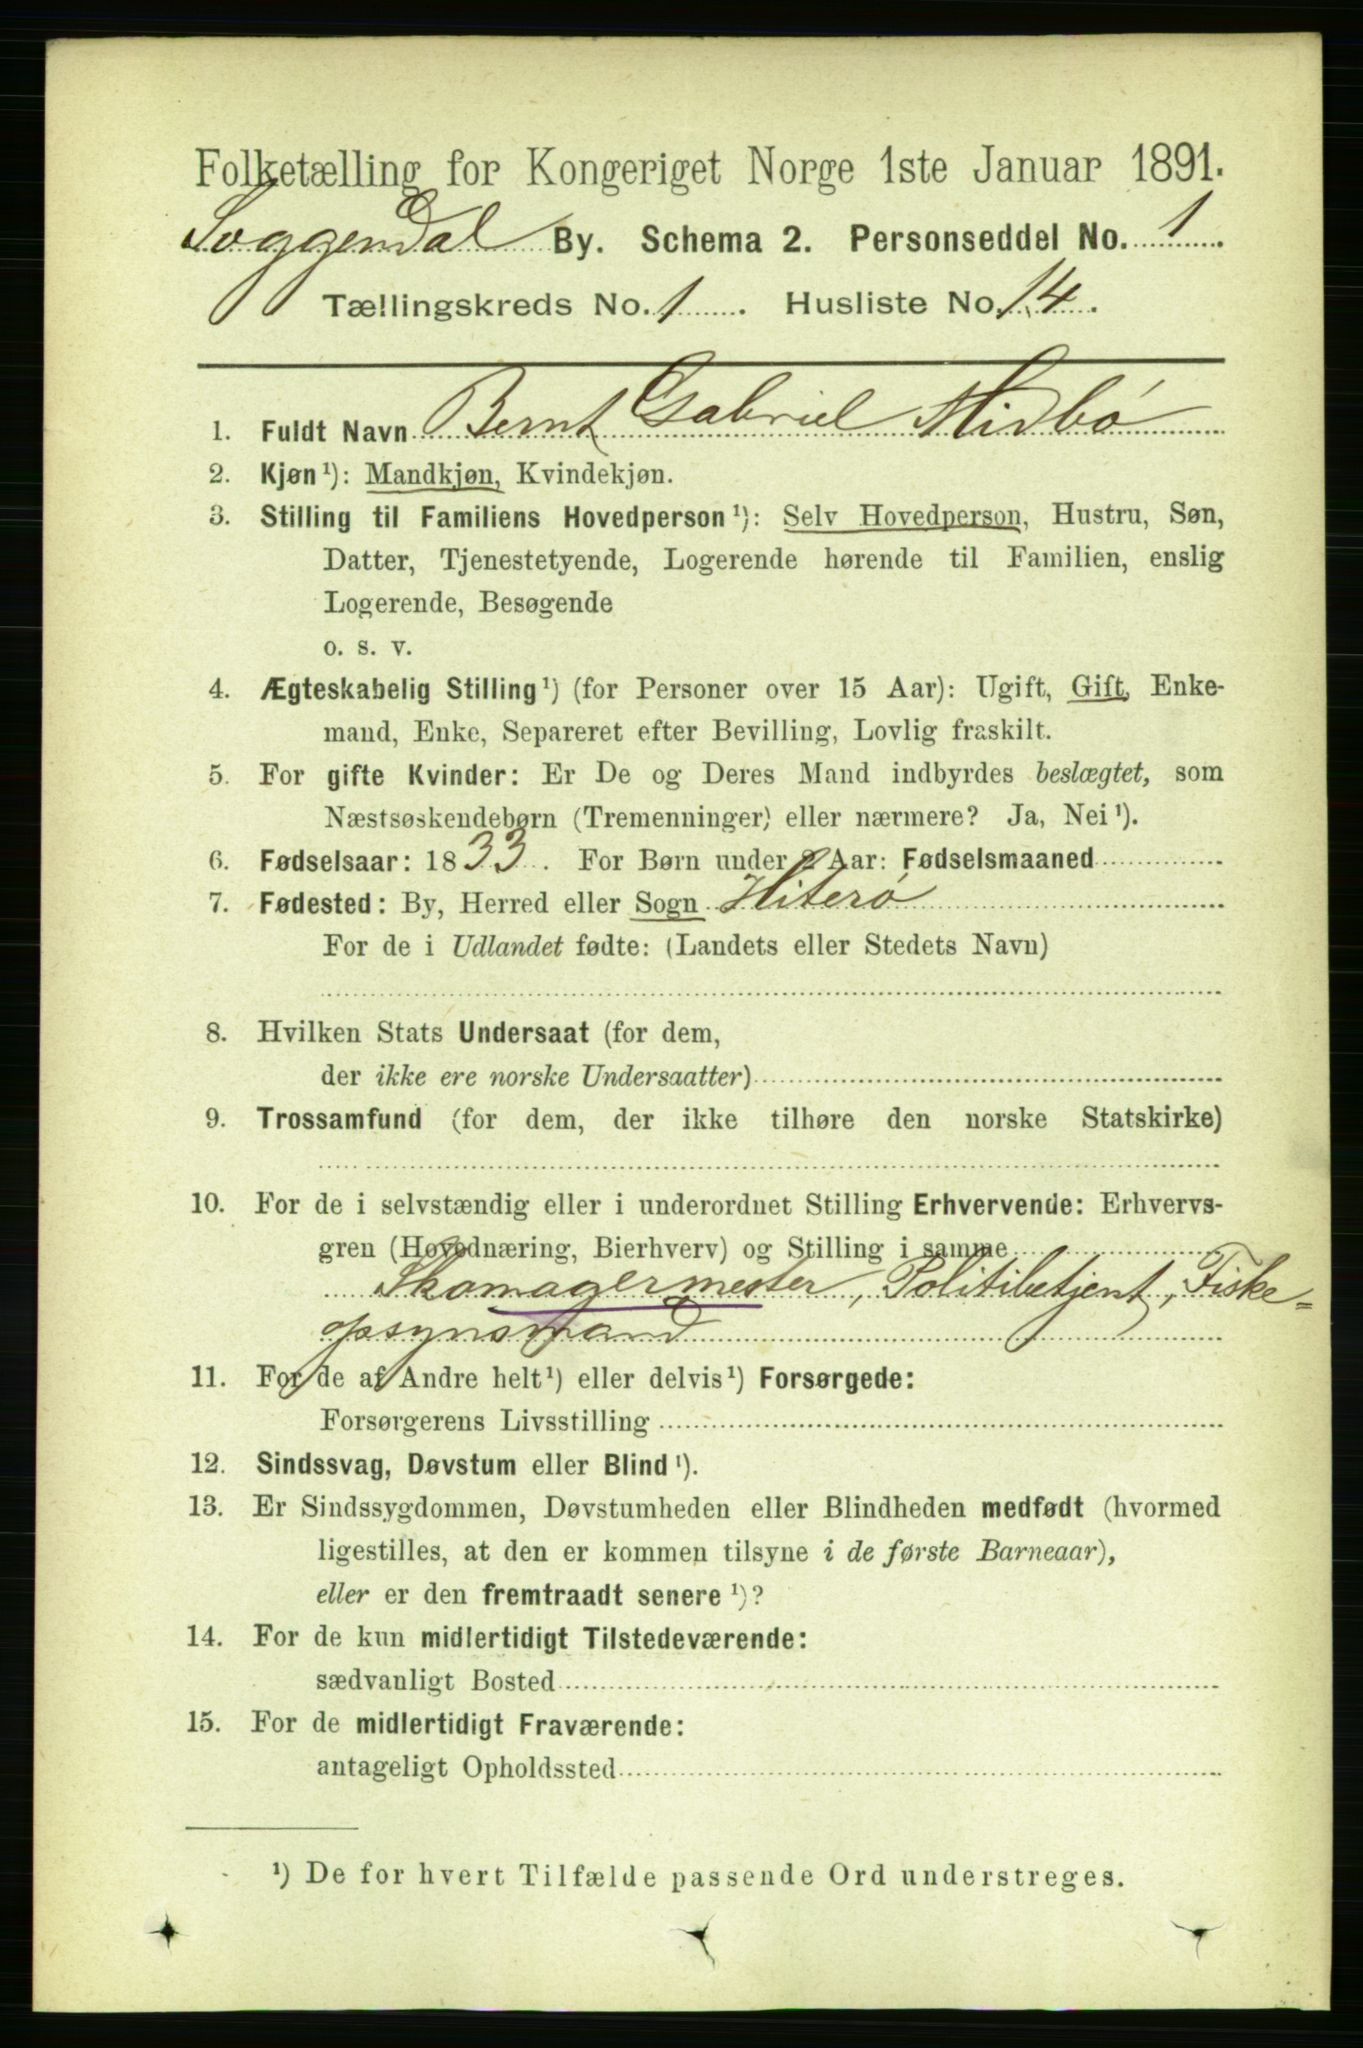 Folketælling for Kongeriget Norge 1ste Januar 1891.
Soggendal By. Schema 2. Personseddel No. 1
Tællingskreds No. 1. Husliste No. 14.
1. Fuldt Navn Bernt Gabriel Midbö
2. Kjøn¹): Mandkjøn, Kvindekjøn.
3. Stilling til Familiens Hovedperson¹): Selv Hovedperson, Hustru, Søn,
Datter, Tjenestetyende, Logerende hørende til Familien, enslig
Logerende, Besøgende
o. s. v.
4. Ægteskabelig Stilling¹) (for Personer over 15 Aar): Ugift, Gift, Enke-
mand, Enke, Separeret efter Bevilling, Lovlig fraskilt.
5. For gifte Kvinder: Er De og Deres Mand indbyrdes beslægtet, som
Næstsøskendebørn (Tremenninger) eller nærmere? Ja, Nei¹).
6. Fødselsaar: 1833. For Børn under 2 Aar: Fødselsmaaned
7. Fødested: By, Herred eller Sogn Hiterö
For de i Udlandet fødte: (Landets eller Stedets Navn)
8. Hvilken Stats Undersaat (for dem,
der ikke ere norske Undersaatter)
9. Trossamfund (for dem, der ikke tilhøre den norske Statskirke)
10. For de i selvstændig eller i underordnet Stilling Erhvervende: Erhvervs-
gren (Hovednæring, Bierhverv) og Stilling i samme
Skomagermester, Politibetjent, Fiske=
opsynsmand
11. For de af Andre helt¹) eller delvis¹) Forsørgede:
Forsørgerens Livsstilling
12. Sindssvag, Døvstum eller Blind¹).
13. Er Sindssygdommen, Døvstumheden eller Blindheden medfødt (hvormed
ligestilles, at den er kommen tilsyne i de første Barneaar),
eller er den fremtraadt senere¹)?
14. For de kun midlertidigt Tilstedeværende:
sædvanligt Bosted
15. For de midlertidigt Fraværende:
antageligt Opholdssted
¹) De for hvert Tilfælde passende Ord understreges.